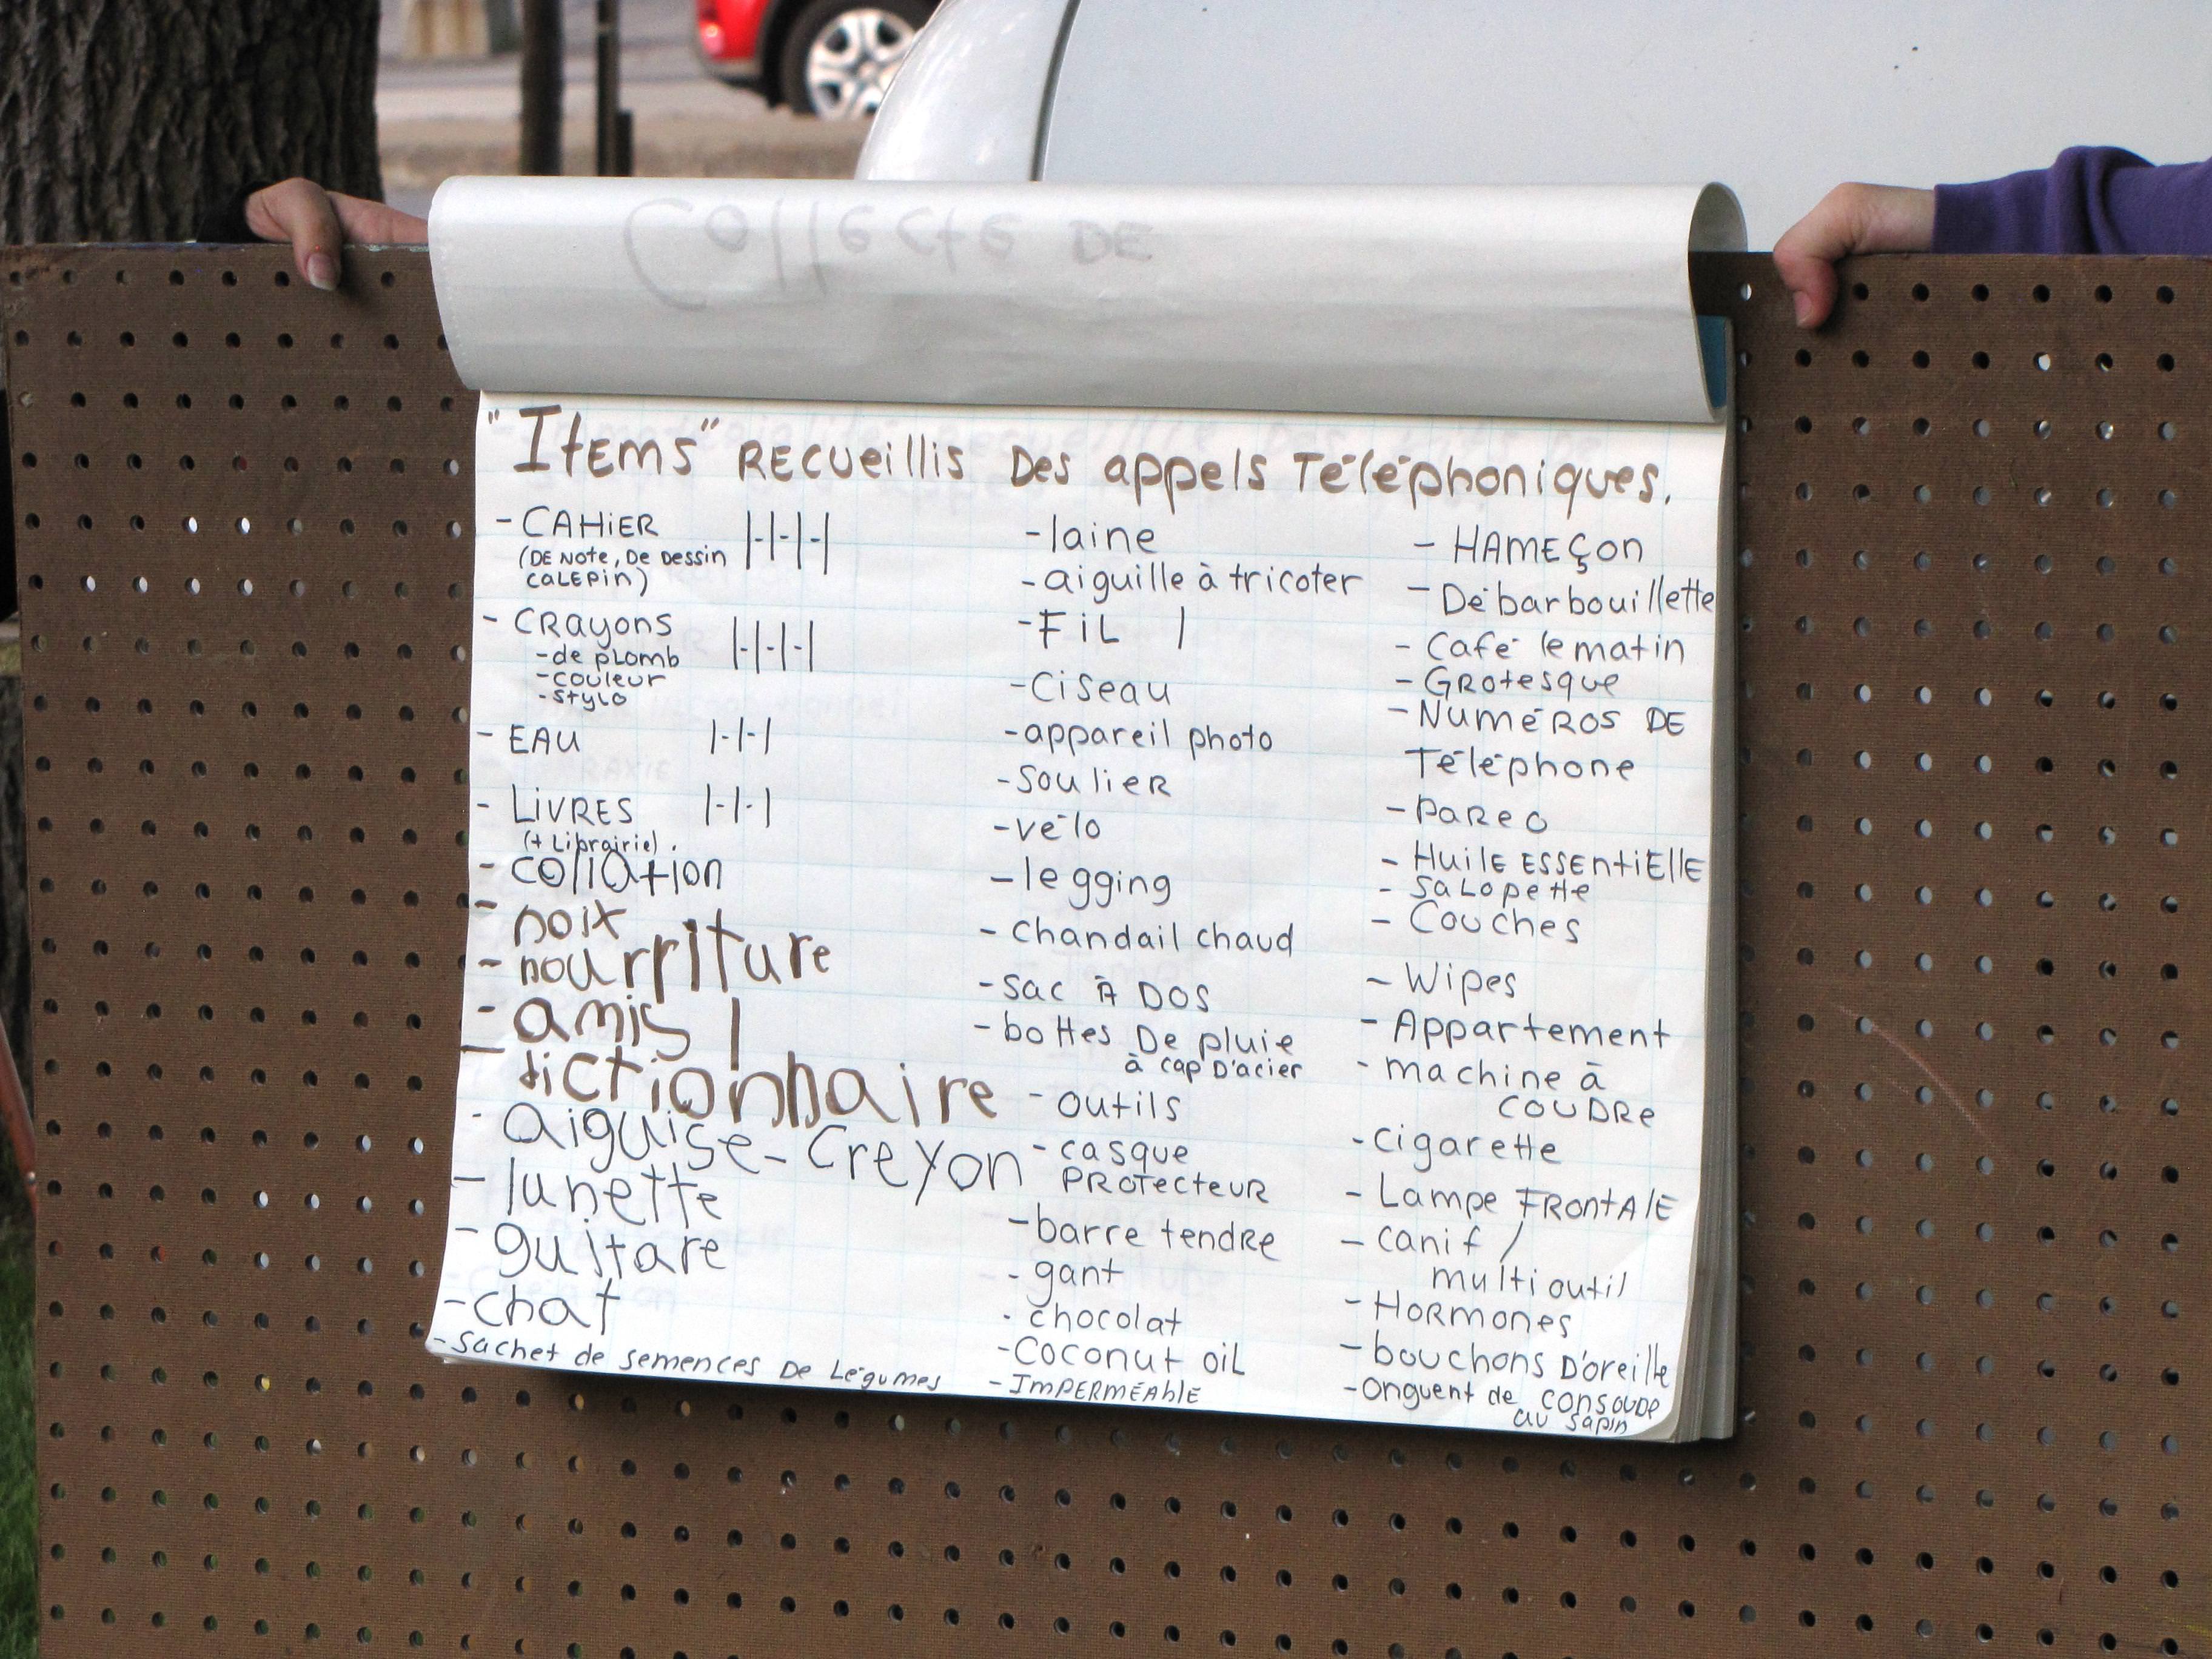 Collecte DE
"Items" Recueillis Des appels Téléphoniques.
- CAHIER
(DE Note, De Dessin
CALEPin)
- CRayons
- de plomb
- couleur
- stylo
- EAU
- LiVRES
(+ Librairie).
- collation
- noix
- nourriture
- amis
- dictionnaire
- aiguise-Creyon
- lunette
- guitare
- chat
- Sachet de semences De Légumes
- laine
- aiguille à tricoter
- FiL
- Ciseau
- appareil photo
- Soulier
- vélo
- legging
- chandail chaud
- Sac À DOS
- bottes De pluie
à cap D'acier
- outils
- casque
PROTECTEUR
- barre tendre
- gant
- chocolat
- Coconut oiL
- IMPERMÉABLE
- HAMEÇon
- Débarbouillette
- Café le matin
- GRotesque
- NUMÉROS DE
Téléphone
- paReo
- HuilE ESSEntiElle
- SaLopette
- Couches
- Wipes
- Appartement
- machine à
COUDRe
- cigarette
- Lampe FRontAlE
- canif /
multi outil
- HoRmones
- bouchons D'oreille
- Onguent de consoude
au sapin